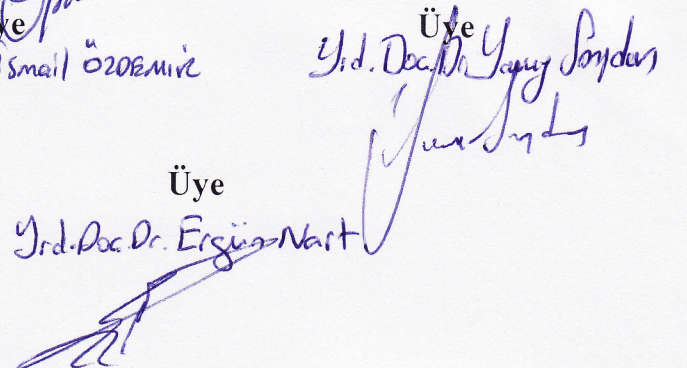 Üye
İsmail ÖZDEMİR
Üye
Yrd. Doç. Dr. Yavuz Soydan
Üye
Yrd. Doç. Dr. Ergün Nart